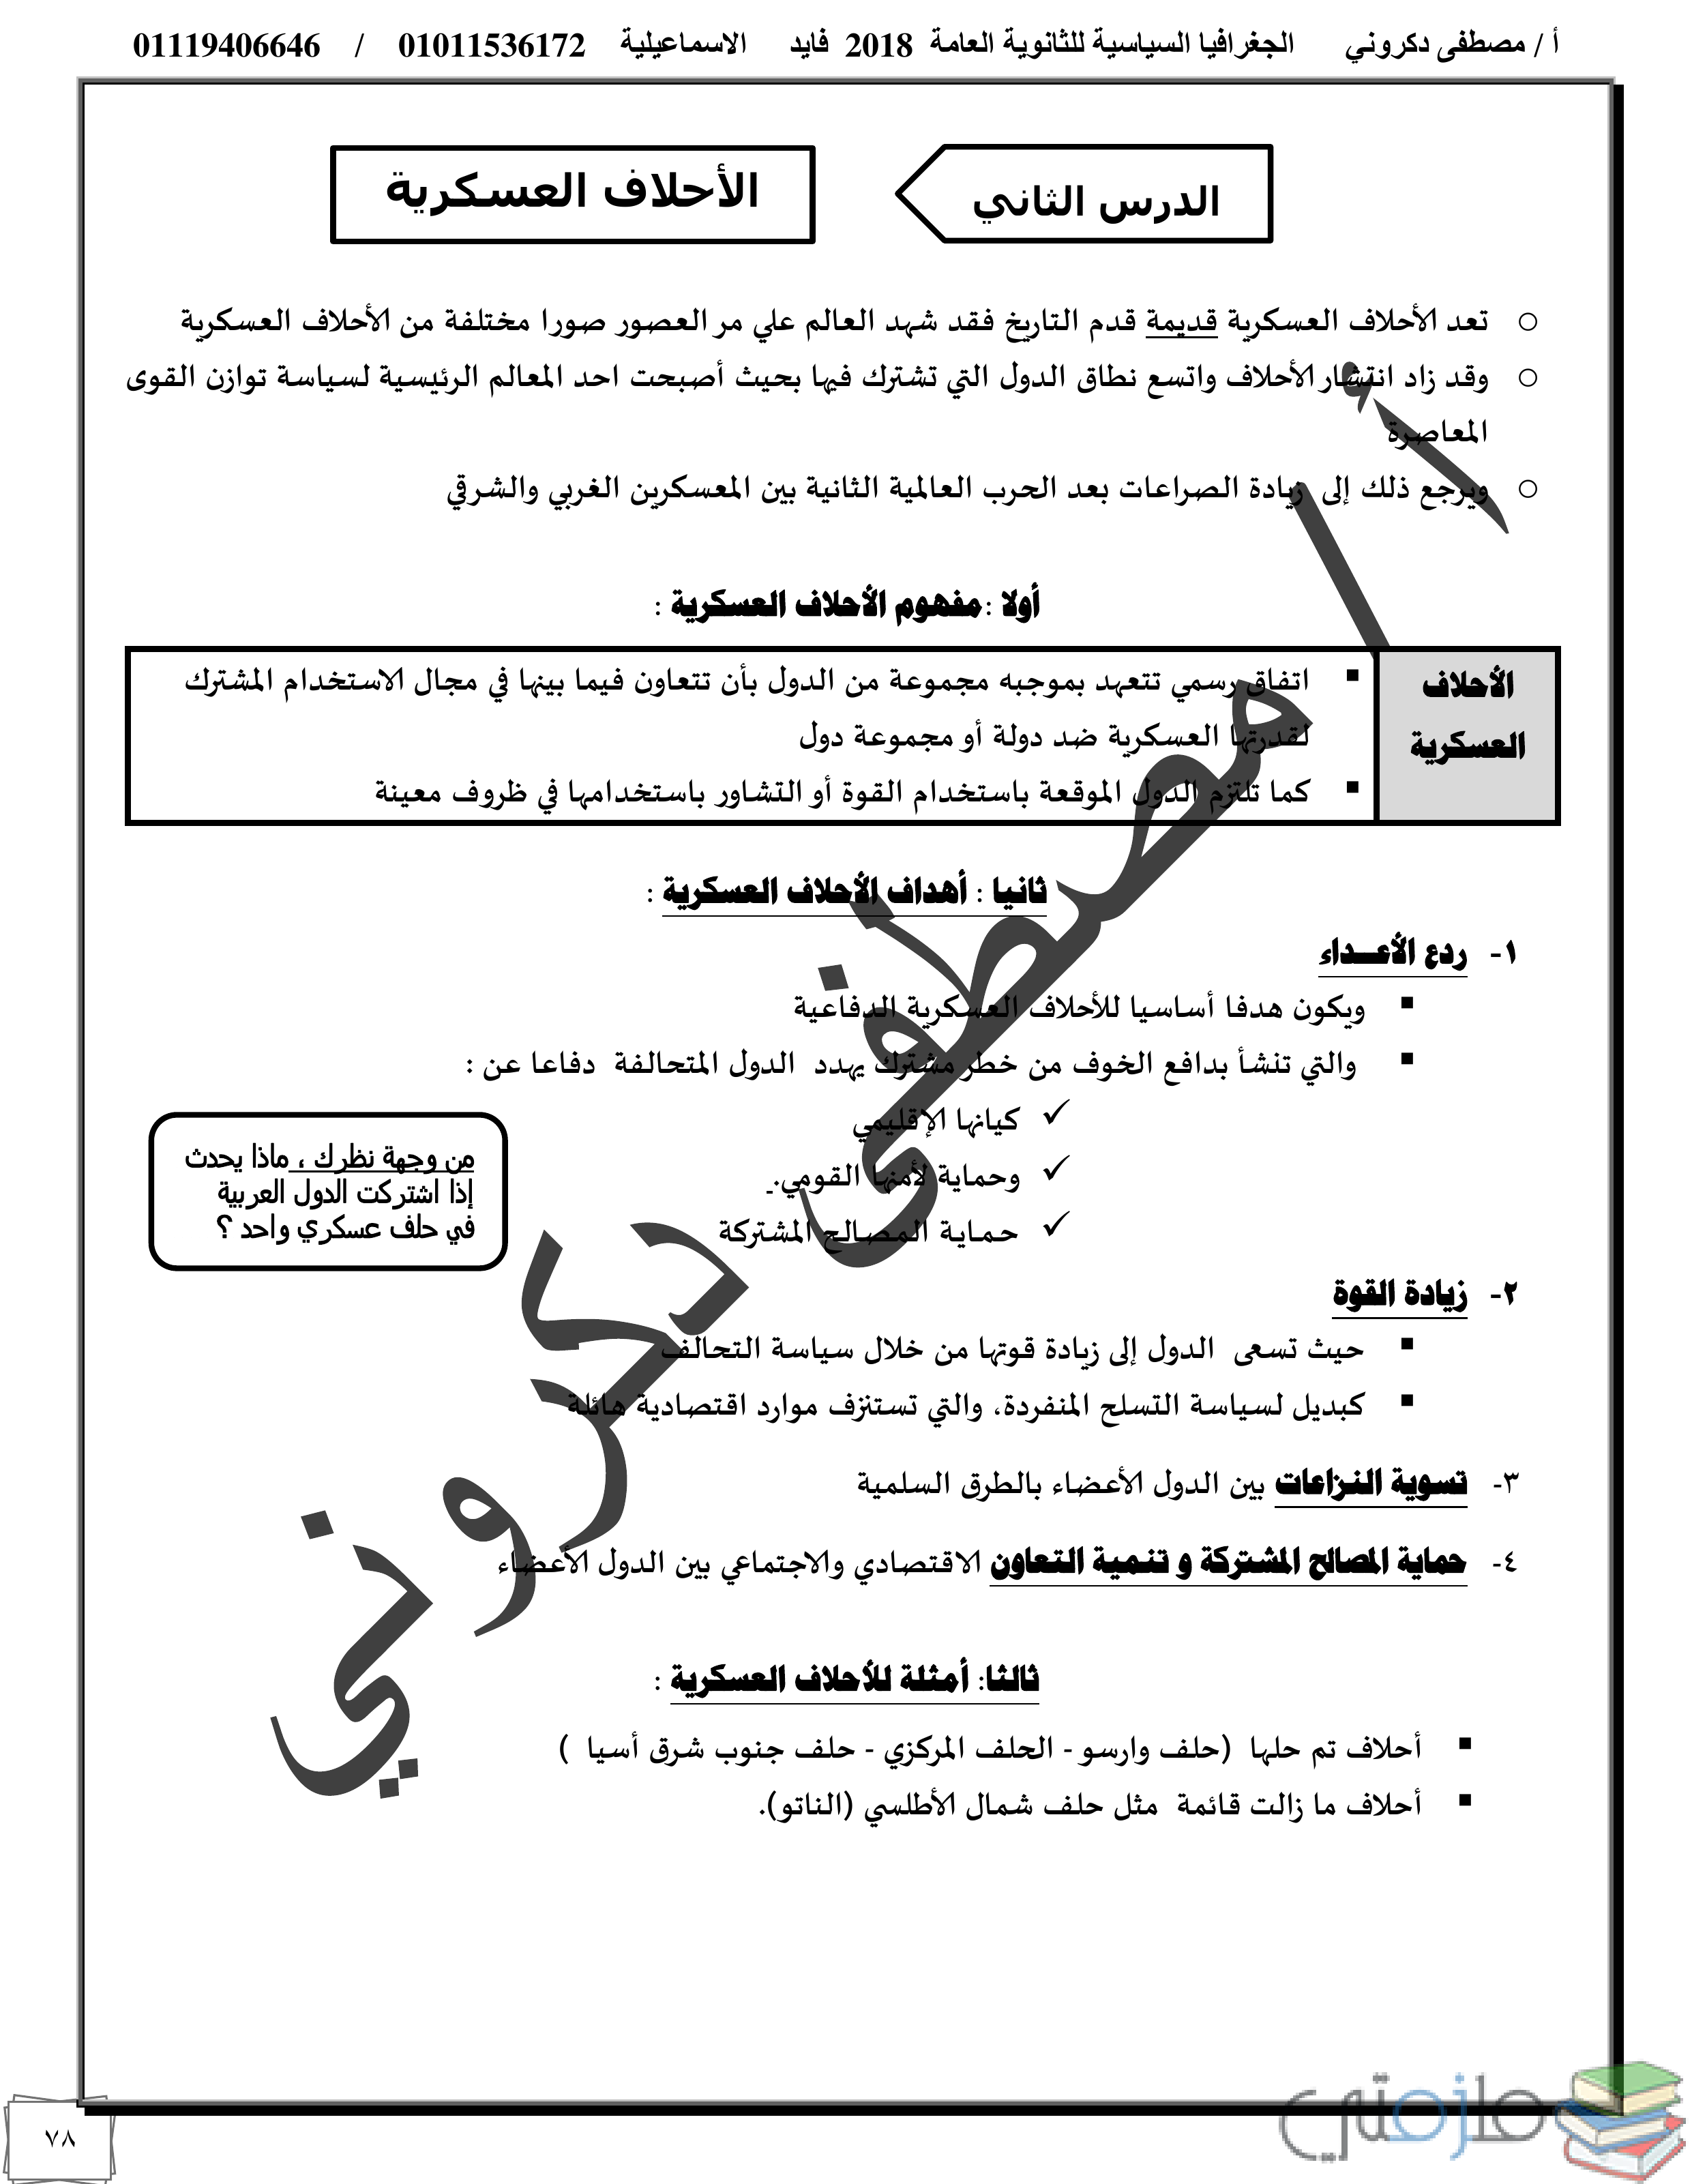 أ / مصطفى دكروني الجغرافيا السياسية للثانوية العامة 2018 فايد الاسماعيلية 01011536172 / 01119406646
الدرس الثاني
الأحلاف العسكرية
○ تعد الأحلاف العسكرية قديمة قدم التاريخ فقد شهد العالم علي مر العصور صورا مختلفة من الأحلاف العسكرية
○ وقد زاد انتشار الأحلاف واتسع نطاق الدول التي تشترك فيها بحيث أصبحت احد المعالم الرئيسية لسياسة توازن القوى
المعاصرة
○ ويرجع ذلك إلى زيادة الصراعات بعد الحرب العالمية الثانية بين المعسكرين الغربي والشرقي
أولا : مفهوم الأحلاف العسكرية :
الأحلاف
العسكرية
▪ اتفاق رسمي تتعهد بموجبه مجموعة من الدول بأن تتعاون فيما بينها في مجال الاستخدام المشترك
لقدرتها العسكرية ضد دولة أو مجموعة دول
▪ كما تلتزم الدول الموقعة باستخدام القوة أو التشاور باستخدامها في ظروف معينة
ثانيا : أهداف الأحلاف العسكرية :
١- ردع الأعـــداء
▪ ويكون هدفا أساسيا للأحلاف العسكرية الدفاعية
▪ والتي تنشأ بدافع الخوف من خطر مشترك يهدد الدول المتحالفة دفاعا عن :
✓ كيانها الإقليمي
✓ وحماية لأمنها القومي.
✓ حماية المصالح المشتركة
من وجهة نظرك ، ماذا يحدث
إذا اشتركت الدول العربية
في حلف عسكري واحد ؟
٢- زيادة القوة
▪ حيث تسعى الدول إلى زيادة قوتها من خلال سياسة التحالف
▪ كبديل لسياسة التسلح المنفردة، والتي تستنزف موارد اقتصادية هائلة
٣- تسوية النزاعات بين الدول الأعضاء بالطرق السلمية
٤- حماية المصالح المشتركة و تنمية التعاون الاقتصادي والاجتماعي بين الدول الأعضاء
ثالثا: أمثلة للأحلاف العسكرية :
▪ أحلاف تم حلها (حلف وارسو - الحلف المركزي - حلف جنوب شرق أسيا )
▪ أحلاف ما زالت قائمة مثل حلف شمال الأطلسي (الناتو).
أ / مصطفى دكروني
٧٨
ملزمتي